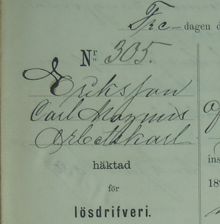 Fre-dagen d
Nr 305.
Eriksson
Carl Magnus
Arbetskarl
häktad
för
lösdrifveri.
ins
18